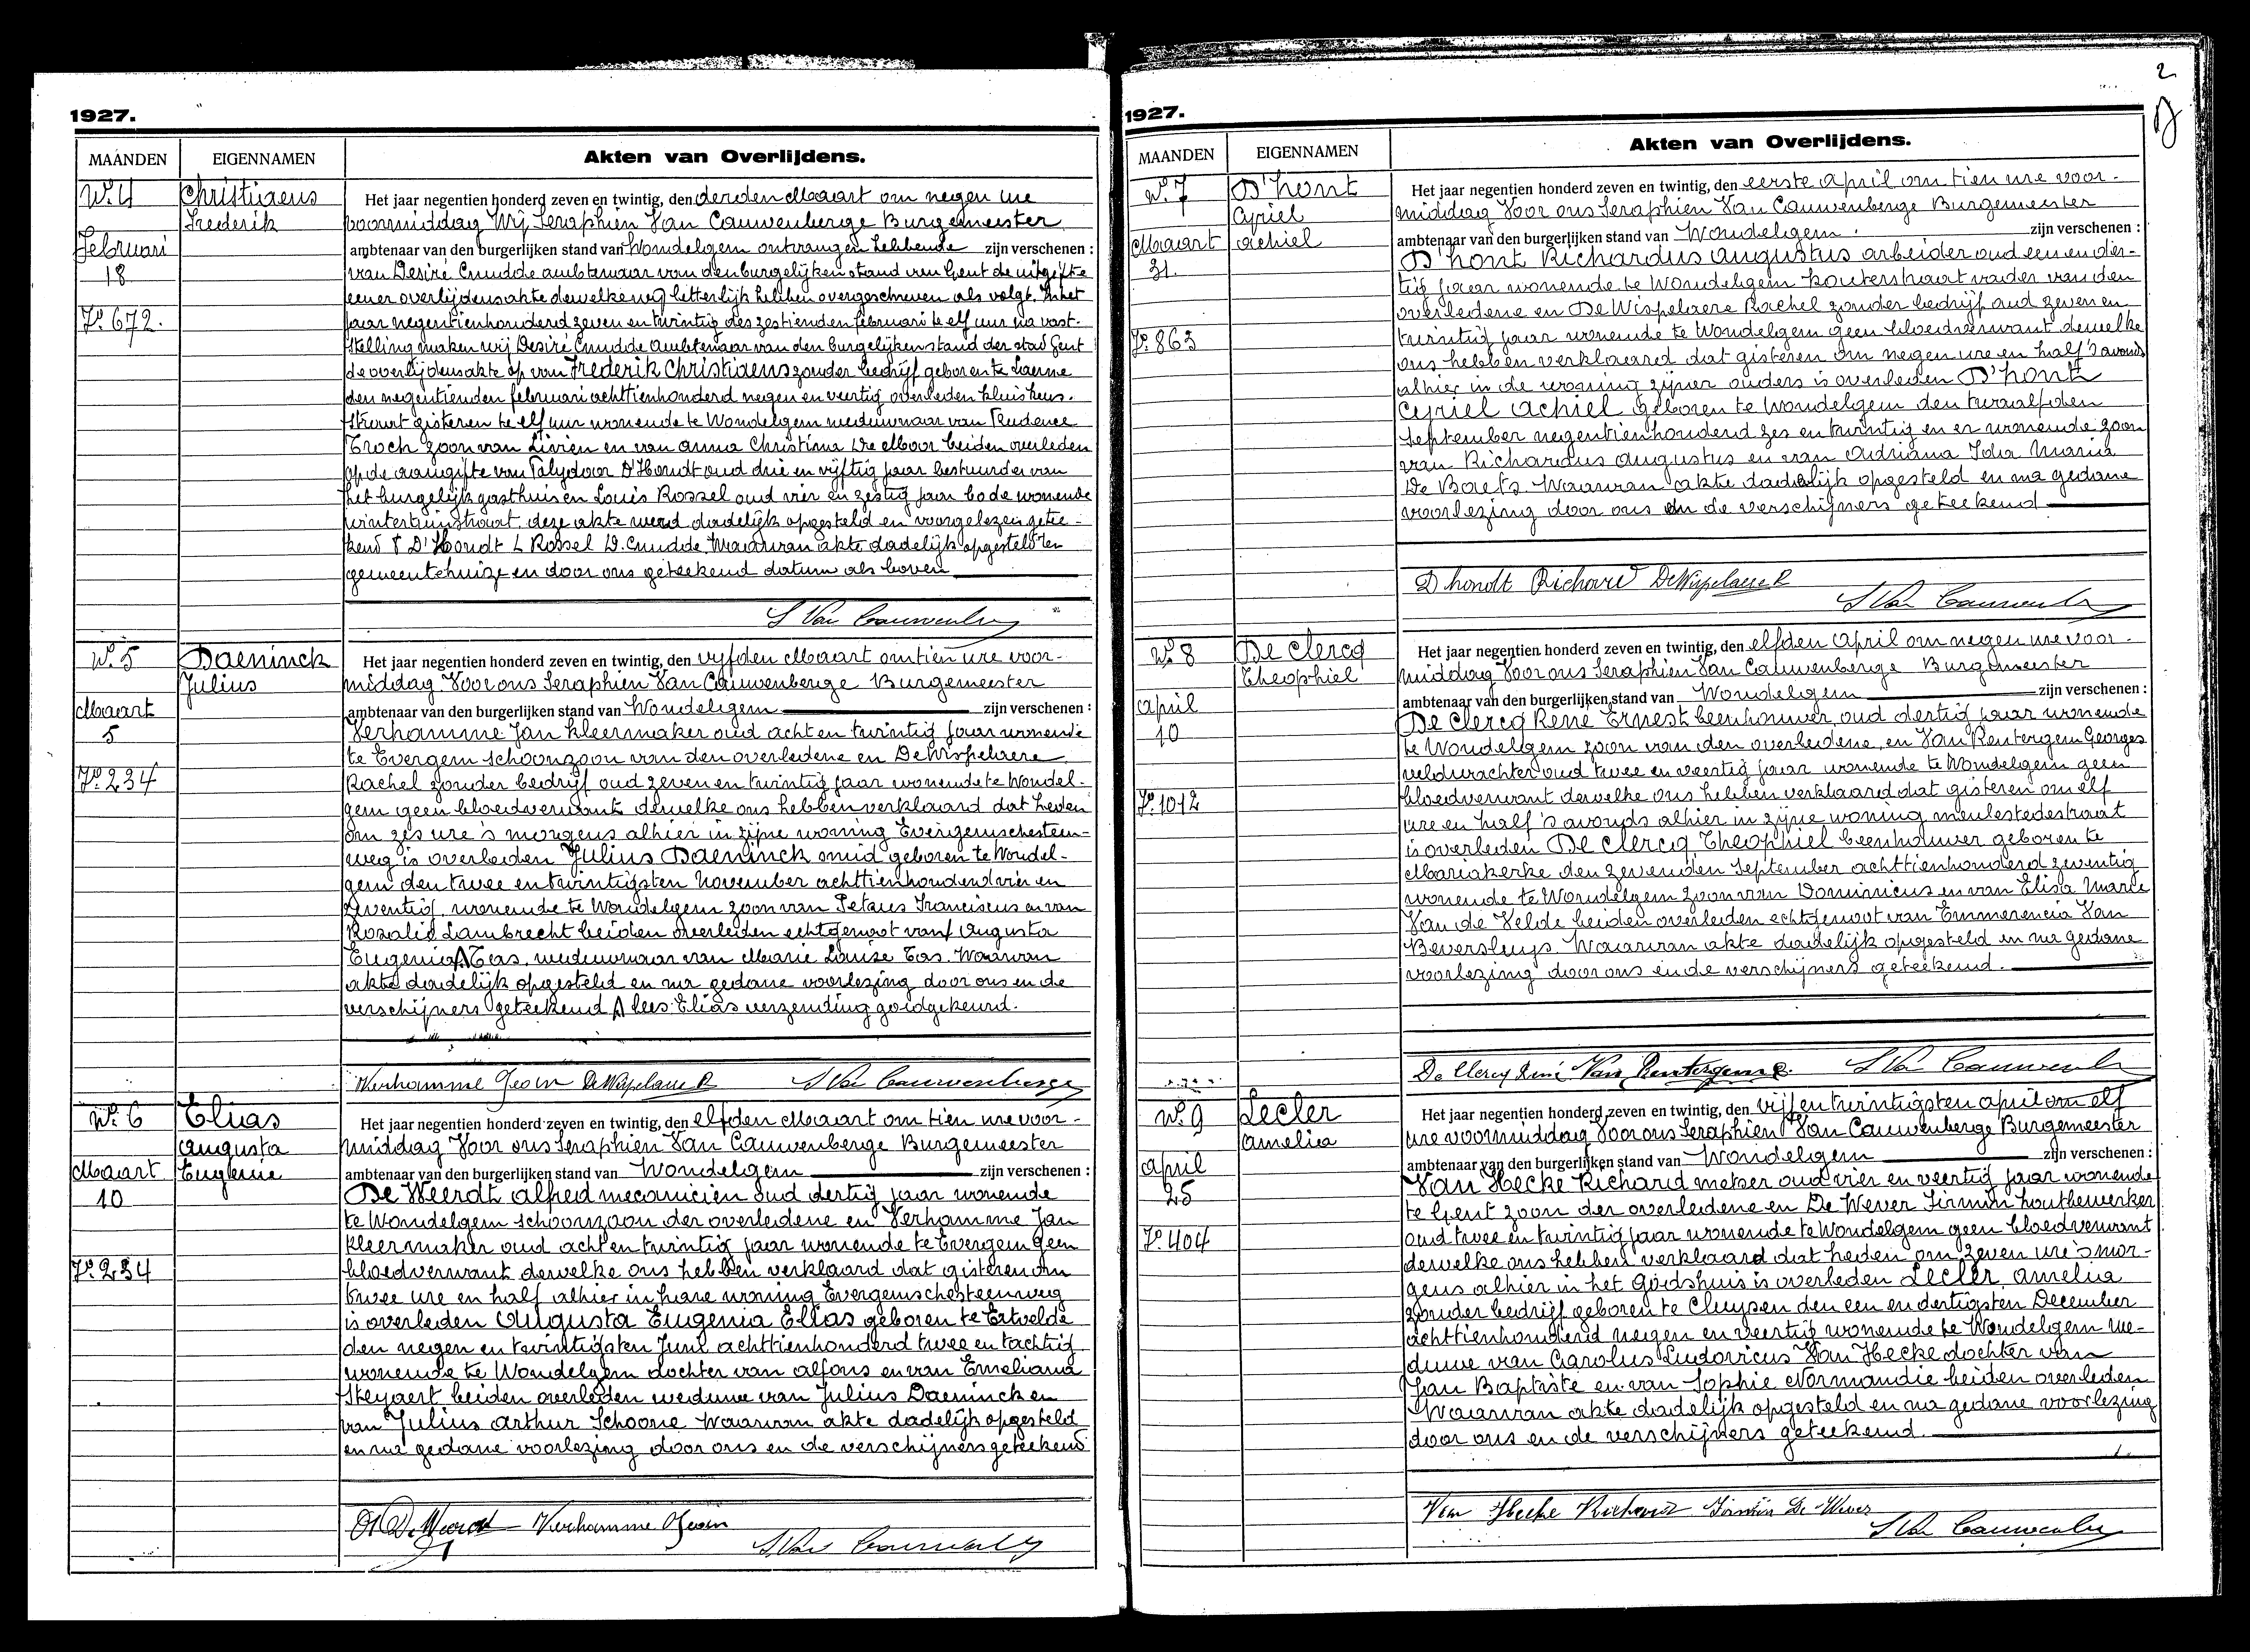 1927.
MAANDEN EIGENNAMEN Akten van Overlijdens.
N°. 4 Christiaens
Frederik
Februari
18
F°. 672.
Het jaar negentien honderd zeven en twintig, den derden Maart om negen ure
voormiddag Wij Seraphien Van Cauwenberge Burgemeester
ambtenaar van den burgerlijken stand van Wondelgem ontvangen hebbende zijn verschenen :
van Desiré Cnudde ambtenaar van den burgelijken stand van Gent de uitgifte
eener overlijdensakte dewelke wij letterlijk hebben overgeschreven als volgt. In het
jaar negentienhonderd zeven en twintig des zestienden februari te elf uur na vast-
stelling maken wij Desiré Cnudde ambtenaar van den burgelijken stand der stad Gent
de overlijdensakte op van Frederik Christiaens zonder bedrijf geboren te Laerne
den negentienden februari achttienhonderd negen en veertig overleden kluiskens-
straat gisteren te elf uur wonende te Wondelgem weduwnaar van Prudence
Troch zoon van Livien en van Anna Christina De Moor beiden overleden
op de aangifte van Polydoor D'Hondt oud drie en vijftig jaar bestuurder van
het burgelijk gasthuis en Louis Rossel oud vier en zestig jaar bode wonende
wintertuinstraat. deze akte werd dadelijk opgesteld en voorgelezen getee-
kend P D'Hondt L Rossel D. Cnudde. Waarvan akte dadelijk opgesteld ten
gemeentehuize en door ons geteekend datum als boven
S Van Cauwenberge
N°. 5 Daeninck
Julius
Maart
5
F°. 234
Het jaar negentien honderd zeven en twintig, den vyfden Maart om tien ure voor-
middag Voor ons Seraphien Van Cauwenberge Burgemeester
ambtenaar van den burgerlijken stand van Wondelgem zijn verschenen :
Verhamme Jan kleermaker oud acht en twintig jaar wonende
te Evergem schoonzoon van den overledene en De Wispelaere
Rachel zonder bedrijf oud zeven en twintig jaar wonende te Wondel-
gem geen bloedverwant dewelke ons hebben verklaard dat heden
om zes ure 's morgens alhier in zijne woning Evergemschesteen-
weg is overleden Julius Daeninck smid geboren te Wondel-
gem den twee en twintigsten November achttienhonderd vier en
zeventig, wonende te Wondelgem zoon van Petrus Franciscus en van
Rosalie Lambrecht beiden overleden echtgenoot van Augusta
Eugenia Λ Eas. weduwnaar van Marie Louise Eas. Waarvan
akte dadelijk opgesteld en na gedane voorlezing door ons en de
verschijners geteekend Λ lees Elias verzending goedgekeurd.
Verhamme Jean De Wispelaere R S Van Cauwenberge
N°. 6 Elias
Augusta
Maart Eugenie
10
F°. 234
Het jaar negentien honderd zeven en twintig, den elfden Maart om tien ure voor-
middag Voor ons Seraphien Van Cauwenberge Burgemeester
ambtenaar van den burgerlijken stand van Wondelgem zijn verschenen :
De Weerdt Alfred mecanicien oud dertig jaar wonende
te Wondelgem schoonzoon der overledene en Verhamme Jan
kleermaker oud acht en twintig jaar wonende te Evergem geen
bloedverwant dewelke ons hebben verklaard dat gisteren om
twee ure en half alhier in hare woning Evergemschesteenweg
is overleden Augusta Eugenia Elias geboren te Ertvelde
den negen en twintigsten Juni achttienhonderd twee en tachtig
wonende te Wondelgem dochter van Alfons en van Emeliana
Steyaert beiden overleden weduwe van Julius Daeninck en
van Julius Arthur Schoone Waarvan akte dadelijk opgesteld
en na gedane voorlezing door ons en de verschijners geteekend
A De Weerdt Verhamme Jean
S Van Cauwenberge
2
1927.
MAANDEN EIGENNAMEN Akten van Overlijdens.
N°. 7 D'hont
Cyriel
Maart Achiel
31.
F°. 863
Het jaar negentien honderd zeven en twintig, den eerste April om tien ure voor-
middag Voor ons Seraphien Van Cauwenberge Burgemeester
ambtenaar van den burgerlijken stand van Wondelgem. zijn verschenen :
D'hont Richardus Augustus arbeider oud een en der-
tig jaar wonende te Wondelgem kouterstraat vader van den
overledene en De Wispelaere Rachel zonder bedrijf oud zeven en
twintig jaar wonende te Wondelgem geen bloedverwant dewelke
ons hebben verklaard dat gisteren om negen ure en half 's avonds
alhier in de woning zijner ouders is overleden D'hont
Cyriel Achiel geboren te Wondelgem den twaalfden
September negentienhonderd zes en twintig en er wonende zoon
van Richardus Augustus en van Adriana Ida Maria
De Baets. Waarvan akte dadelijk opgesteld en na gedane
voorlezing door ons en de verschijners geteekend
D hondt Richard De Wispelaere R
S Van Cauwenberge
N°. 8 De Clercq
Theophiel
April
10
F°. 1012
Het jaar negentien honderd zeven en twintig, den elfden April om negen ure voor-
middag Voor ons Seraphien Van Cauwenberge Burgemeester
ambtenaar van den burgerlijken stand van Wondelgem zijn verschenen :
De Clercq René Ernest beenhouwer oud dertig jaar wonende
te Wondelgem zoon van den overledene, en Van Renterghem Georges
veldwachter oud twee en veertig jaar wonende te Wondelgem geen
bloedverwant dewelke ons hebben verklaard dat gisteren om elf
ure en half 's avonds alhier in zijne woning meulestedestraat
is overleden De Clercq Theophiel beenhouwer geboren te
Mariakerke den zevenden September achttienhonderd zeventig
wonende te Wondelgem zoon van Dominicus en van Elisa Marie
Van de Velde beiden overleden echtgenoot van Emmerencia Van
Beversluys Waarvan akte dadelijk opgesteld en na gedane
voorlezing door ons en de verschijners geteekend.
De Clercq René Van Rentergem G. S Van Cauwenberge
N°. 9 Lecler
Amelia
April
25
F°. 404
Het jaar negentien honderd zeven en twintig, den vijf en twintigsten april om elf
ure voormiddag Voor ons Seraphien Van Cauwenberge Burgemeester
ambtenaar van den burgerlijken stand van Wondelgem zijn verschenen :
Van Hecke Richard metser oud vier en veertig jaar wonende
te Gent zoon der overledene en De Wever Firmin houtbewerker
oud twee en twintig jaar wonende te Wondelgem geen bloedverwant
dewelke ons hebben verklaard dat heden om zeven ure 's mor-
gens alhier in het Godshuis is overleden Lecler Amelia
zonder bedrijf geboren te Cluysen den een en dertigsten December
achttienhonderd negen en veertig wonende te Wondelgem we-
duwe van Carolus Ludovicus Van Hecke dochter van
Jan Baptiste en van Sophie Normandie beiden overleden
Waarvan akte dadelijk opgesteld en na gedane voorlezing
door ons en de verschijners geteekend.
Van Hecke Richard Firmin De Wever
S Van Cauwenberge